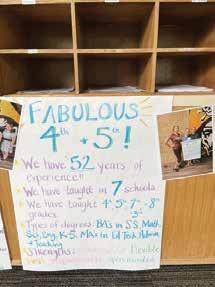 FABULOUS
4th + 5th!
We have 52 years of
experience!!
We have taught in 7 schools.
We have taught 4th 5th 7th 8th
3rd
grades
Types of degrees: BA's in SS, Math,
Sci, Eng, K-5. MA's in Ed Tech, Admin
+ Teaching
Strengths: flexible
open minded